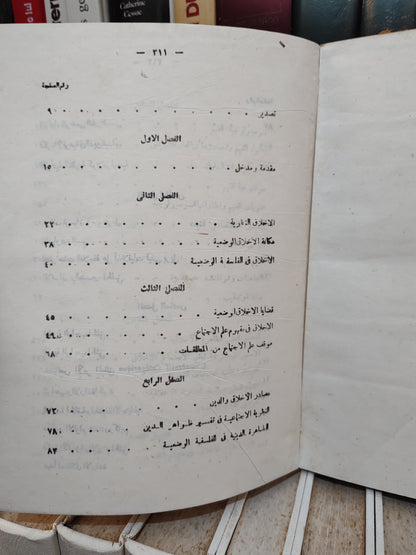 Catherine
Cusset
— ٣١١ —
رقم الصفحة
تصدير ٩
الفصل الاول
مقدمة ومدخل ١٥
الفصل الثانى
الاخلاق النظرية ٢٢
مكانة الاخلاق الوضعية ٣٨
الاخلاق فى الفلسفة الوضعية ٤٠
الفصل الثالث
قضايا الاخلاق الوضعية ٤٥
الاخلاق فى مفهوم علم الاجتماع ٤٩
موقف علم الاجتماع من المطلقات ٦٨
الفصل الرابع
مصادر الاخلاق والدين ٧٢
النظرية الاجتماعية فى تفسير ظواهر الدين ٧٨
الظاهرة الدينية فى الفلسفة الوضعية ٨٢